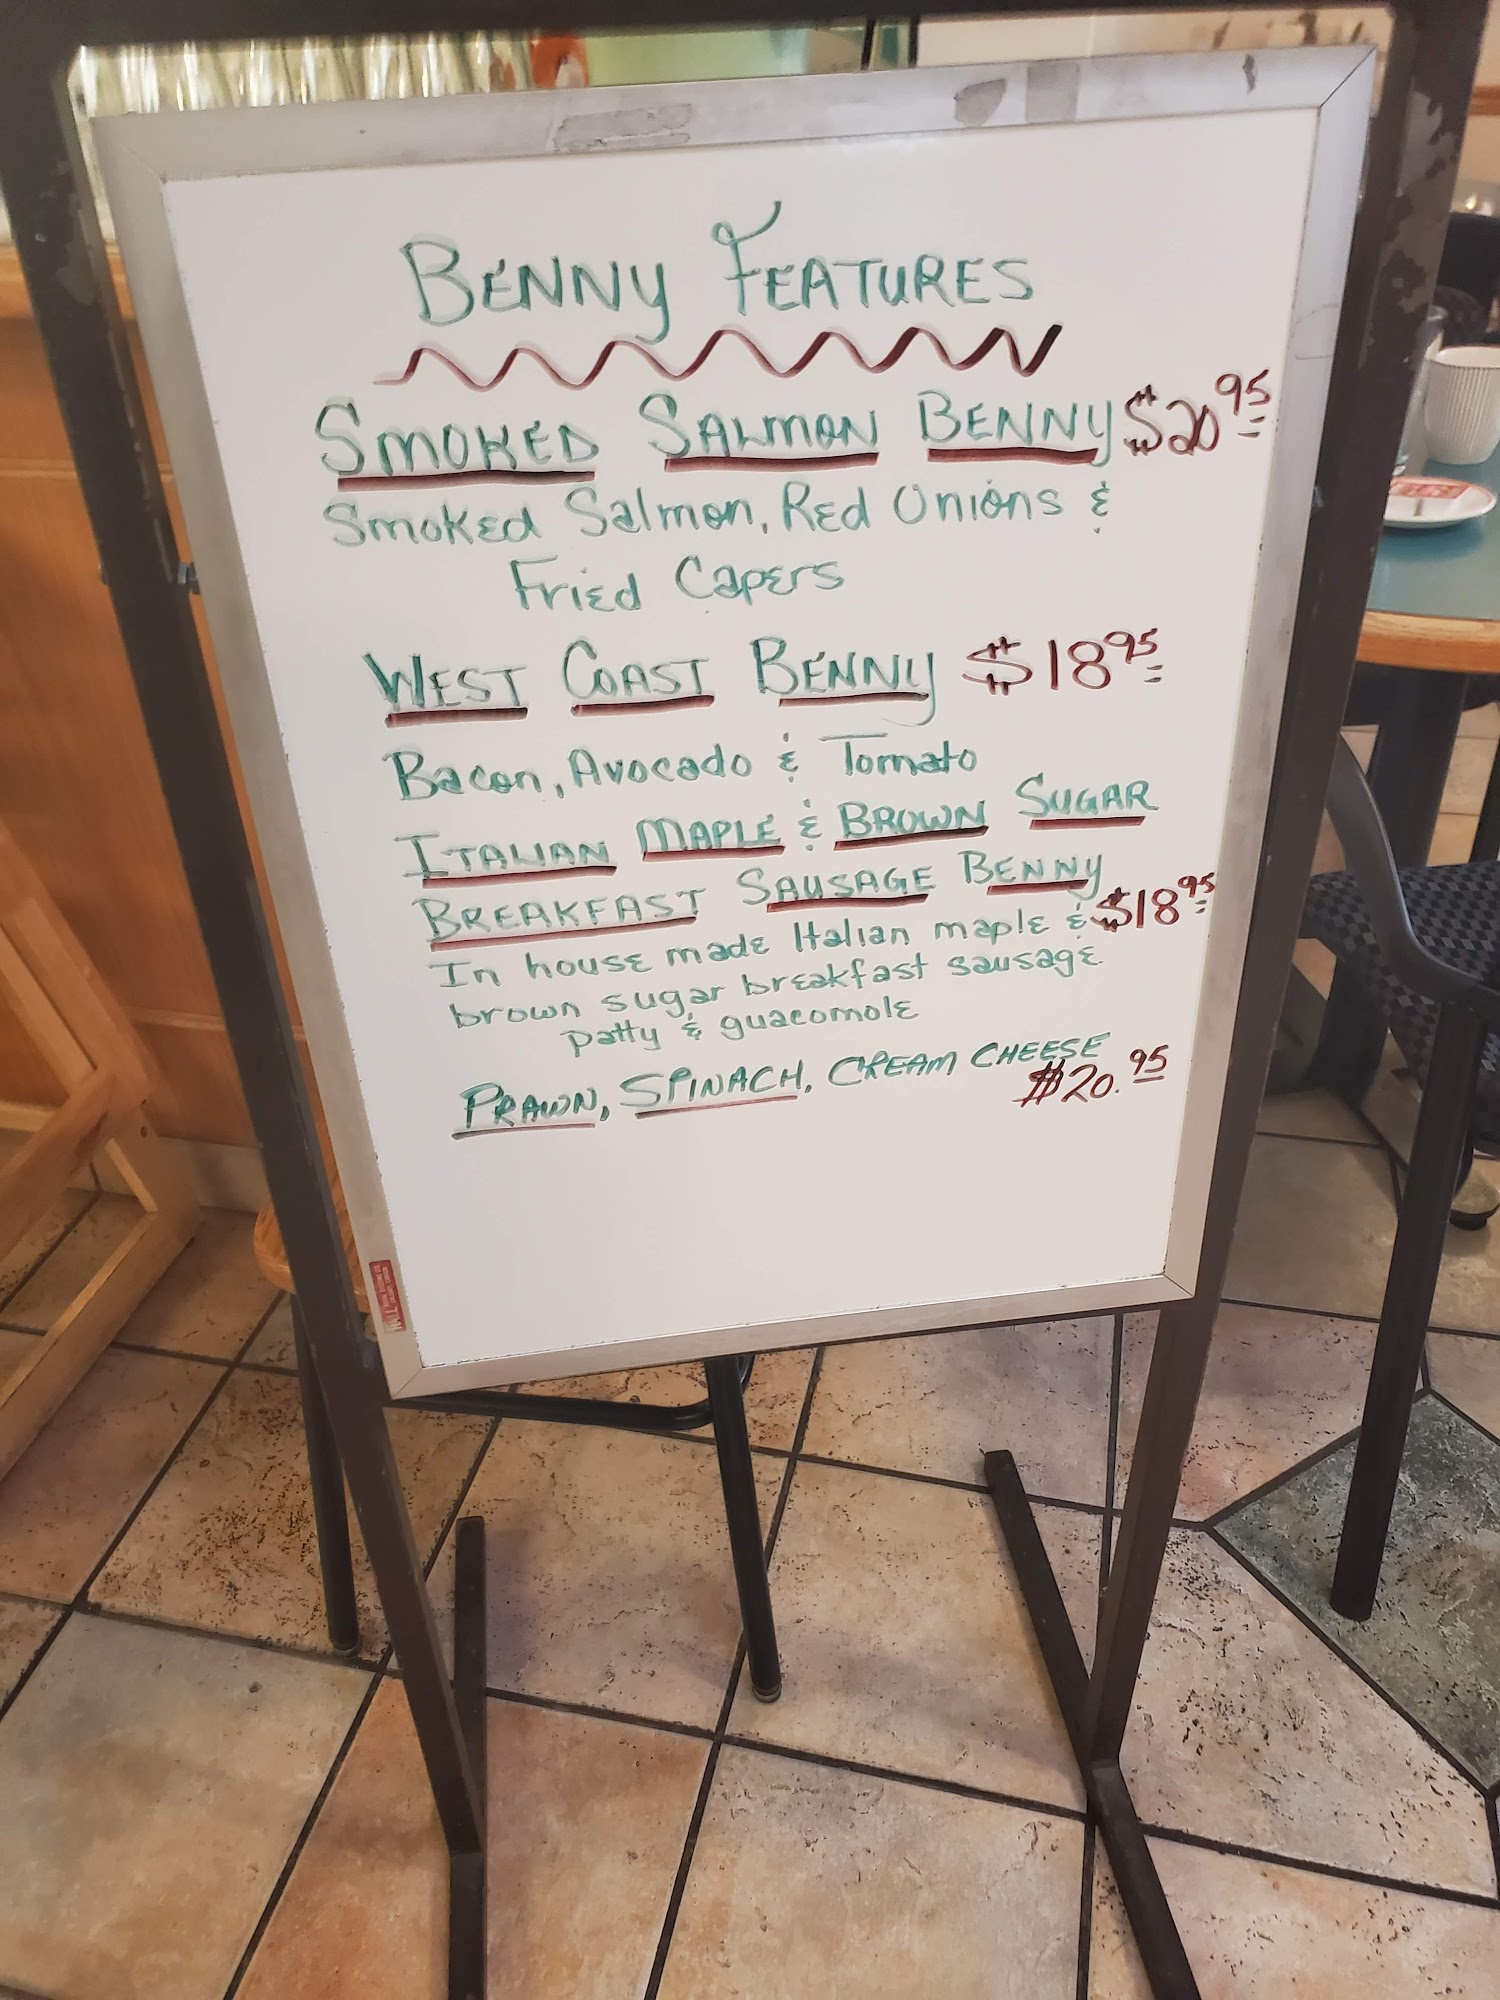 BENNY FEATURES
SMOKED SALMON BENNY $20.95
Smoked Salmon, Red Onions &
Fried Capers
WEST COAST BENNY $18.95
Bacon, Avocado & Tomato
ITALIAN MAPLE & BROWN SUGAR
BREAKFAST SAUSAGE BENNY
$18.95
In house made Italian maple &
brown sugar breakfast sausage
patty & guacomole
PRAWN, SPINACH, CREAM CHEESE
$20.95
HALL